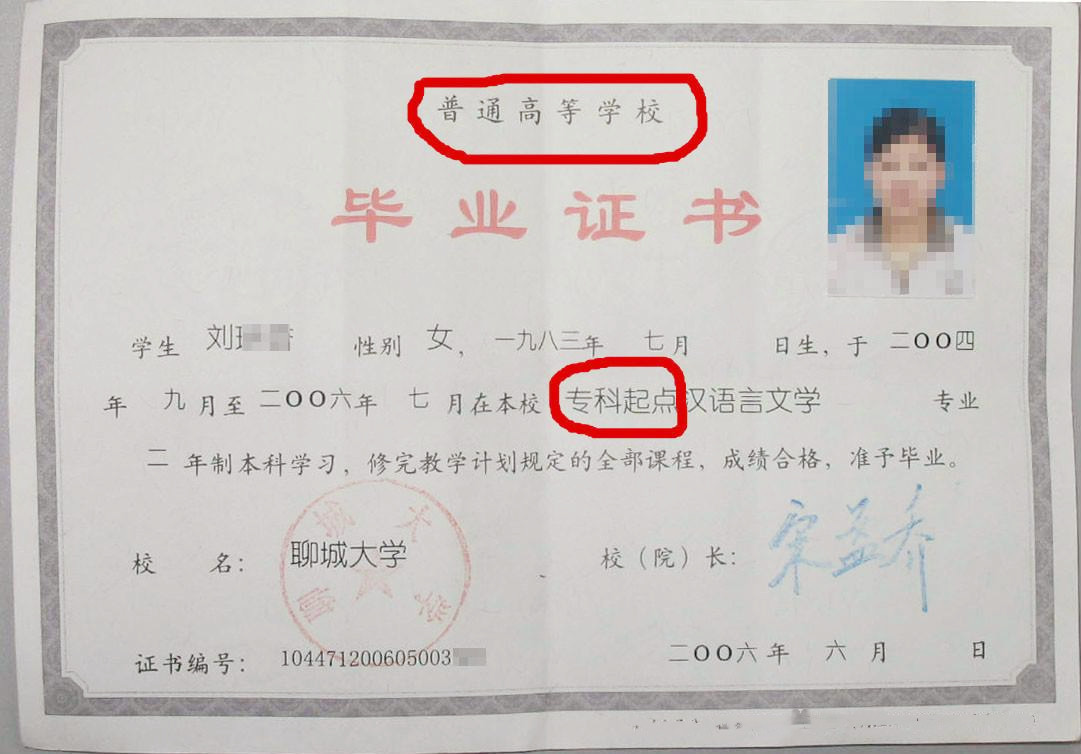 普通高等学校
毕业证书
学生 刘 性别 女，一九八三年 七月 日生，于 二〇〇四
年 九月至 二〇〇六年 七月在本校 专科起点汉语言文学 专业
二 年制本科学习，修完教学计划规定的全部课程，成绩合格，准予毕业。
校 名： 聊城大学 校（院）长： 宋益乔
聊城大学
证书编号： 104471200605003 二〇〇六年 六月 日